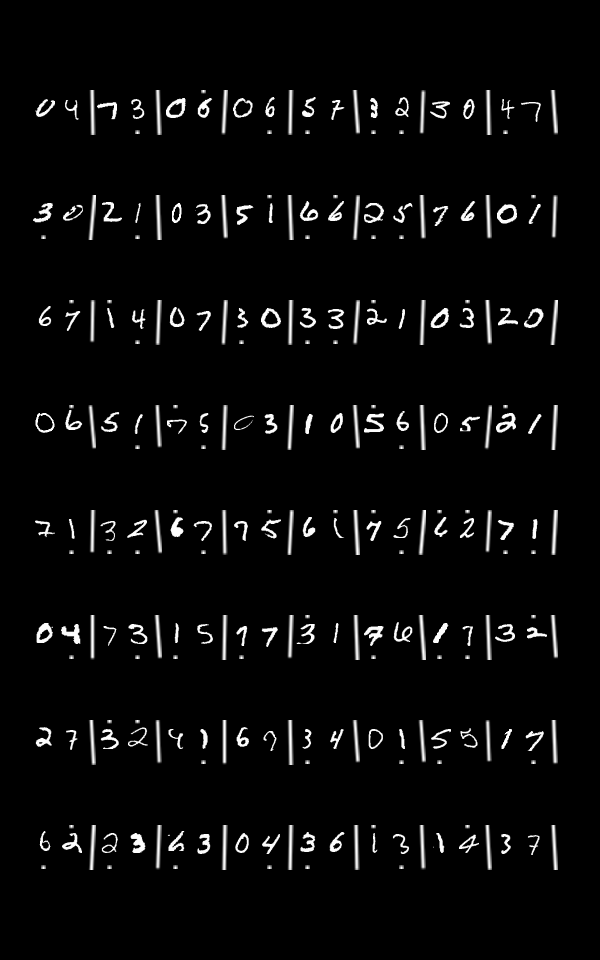 0 4 | 7 3̣ | 0 6̇ | 0 6̣ | 5̣ 7 | 3̣ 2̣ | 3 0 | 4̣ 7 |
3̣ 0 | 2 1̣ | 0 3 | 5 1̇ | 6̣ 6̇ | 2̣ 5̣ | 7 6 | 0 1̇ |
6 7̇ | 1̇ 4̣ | 0 7 | 3̣ 0 | 3̣ 3̣ | 2̇ 1 | 0 3̇ | 2 0 |
0 6̇ | 5 1̣ | 7̇ 5̣ | 0 3 | 1 0 | 5̇ 6̣ | 0 5 | 2̇ 1 |
7 1̣ | 3̣ 2̣ | 6̇ 7̣ | 7 5̇ | 6 1̇ | 7̇ 5̣ | 6̇ 2̇ | 7̣ 1̣ |
0 4̣ | 7 3̣ | 1̣ 5 | 7̣ 7 | 3̇ 1 | 7̣ 6 | 1̣ 7̣ | 3 2̇ |
2 7 | 3̇ 2̇ | 4 1̣ | 6 7 | 3̣ 4 | 0 1̣ | 5̣ 5 | 1 7̣ |
6̣ 2̇ | 2̣ 3 | 6̣ 3 | 0 4̣ | 3̣ 6 | 1̇ 3̣ | 1 4̇ | 3 7 |